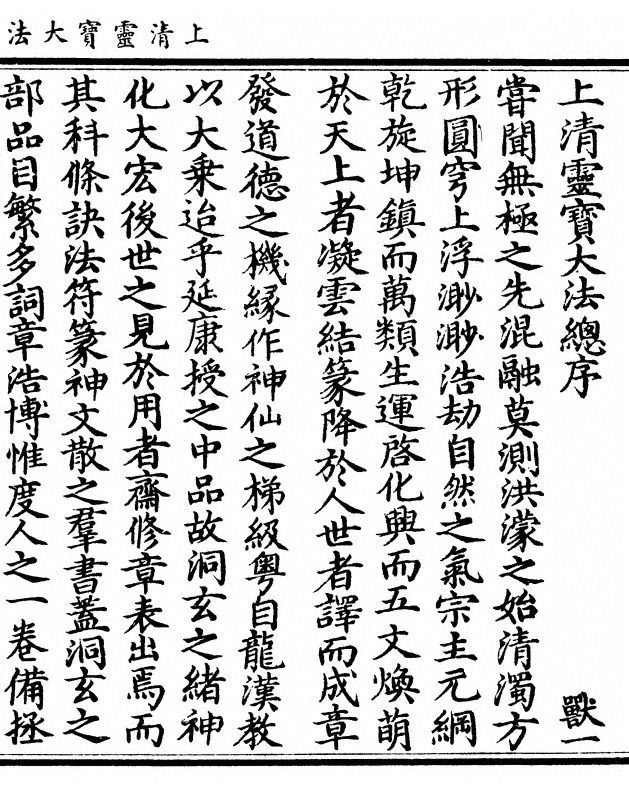 上清靈寶大法
上清靈寶大法總序 獸一
嘗聞無極之先混融莫測洪濛之始清濁方
形圓穹上浮渺渺浩劫自然之氣宗主元綱
乾旋坤鎮而萬類生運啓化興而五文煥萌
於天上者凝雲結篆降於人世者譯而成章
發道德之機緣作神仙之梯級粵自龍漢教
以大乗迨乎延康授之中品故洞玄之緒神
化大宏後世之見於用者齋修章表出焉而
其科條訣法符篆神文散之羣書蓋洞玄之
部品目繁多詞章浩博惟度人之一卷備拯